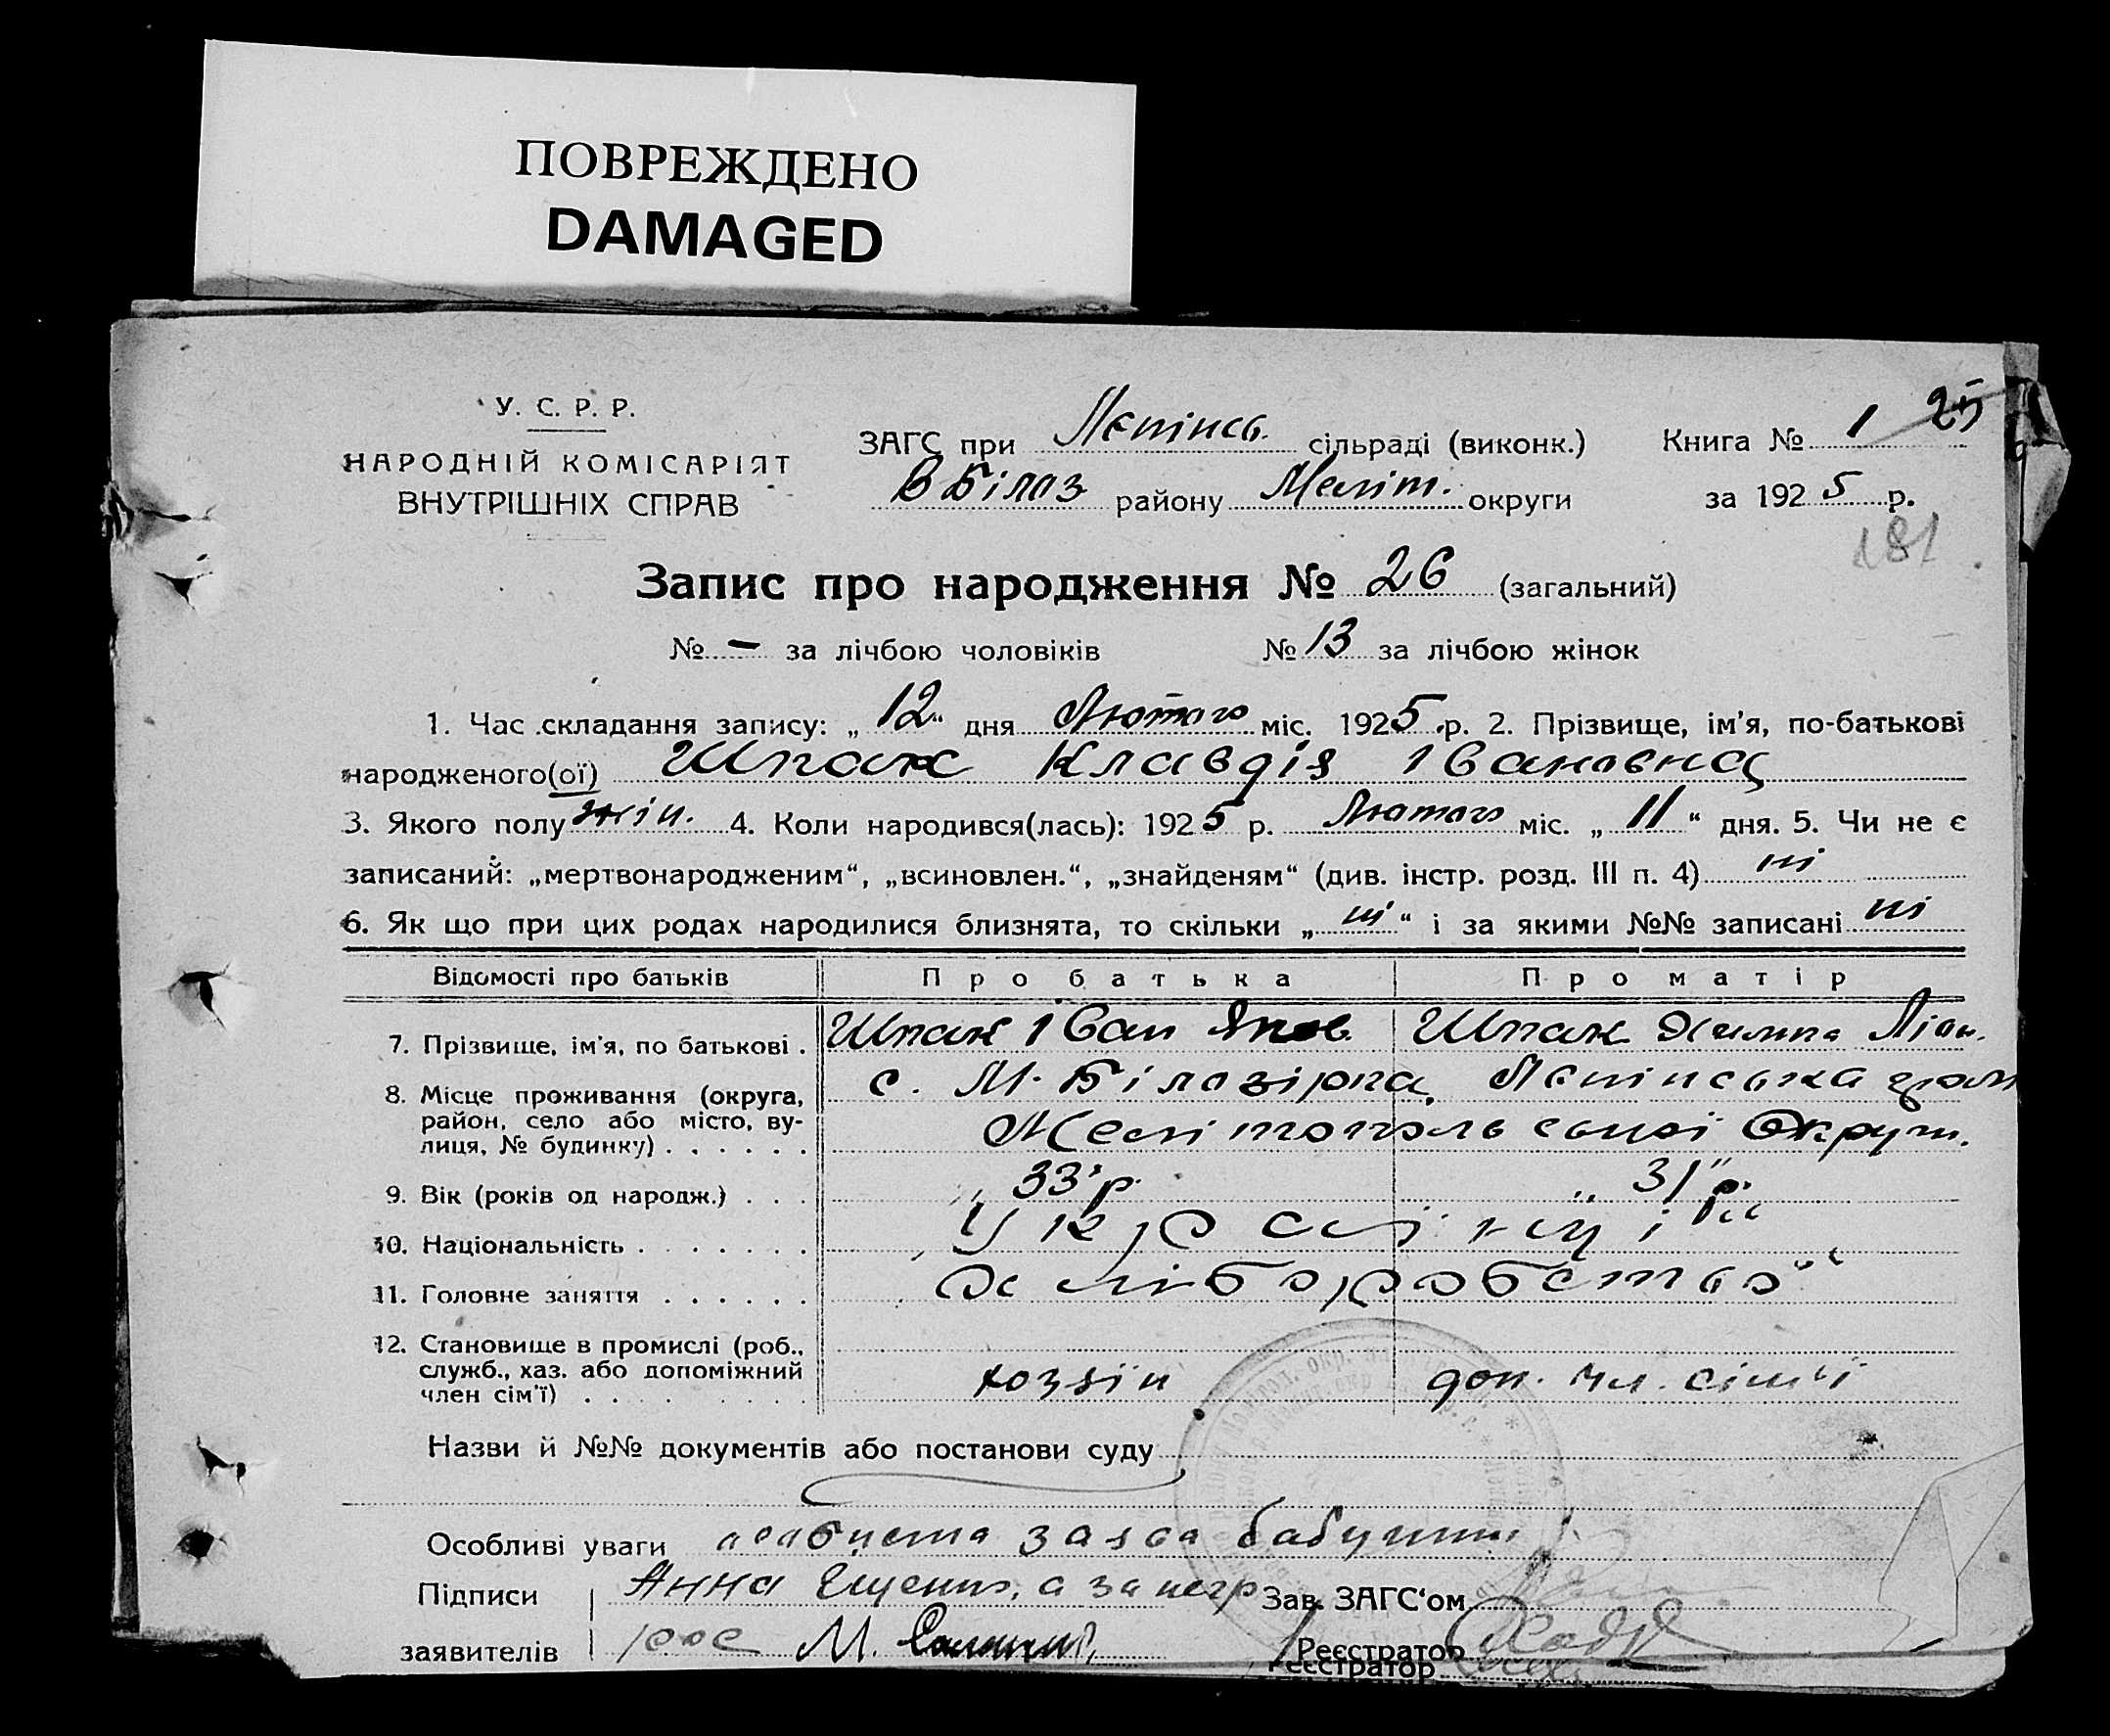 ПОВРЕЖДЕНО
DAMAGED
У. С. Р. Р.
НАРОДНІЙ КОМІСАРІЯТ
ВНУТРІШНІХ СПРАВ
ЗАГС при Лєпінсь. сільраді (виконк.) Книга № 1 25
В Білоз району Меліт. округи за 1925 р.
181
Запис про народження № 26 (загальний)
№ - за лічбою чоловіків № 13 за лічбою жінок
1. Час складання запису: „ 12 " дня Лютого міс. 1925 р. 2. Прізвище, ім'я, по-батькові
народженого(ої) Шпак Клавдія Івановна
3. Якого полу жін. 4. Коли народився(лась): 1925 р. Лютого міс. „ 11 “ дня. 5. Чи не є
записаний: „мертвонародженим“, „всиновлен.“, „знайденям“ (див. інстр. розд. III п. 4) ні
6. Як що при цих родах народилися близнята, то скільки „ ні “ і за якими №№ записані ні
Відомості про батьків Про батька Про матір
7. Прізвище, ім'я, по батькові . Шпак Іван Яков. Шпак
8. Місце проживання (округа, с. М. Білозірка, Лєпінська
район, село або місто, ву-
лиця, № будинку) . . . . . . Мелітопольської Округи.
9. Вік (років од народж.) . . . „ 33 р. „ 31 р.
10. Національність . . . . . . . Українці
11. Головне заняття . . . . . . Хліборобство
12. Становище в промислі (роб.,
служб., хаз. або допоміжний
член сім'ї) . . . . . . . хозяїн доп. чл. сім'ї
Назви й №№ документів або постанови суду
Особливі уваги особиста заява бабушки
Підписи Анна а за негр Зав. ЗАГС'ом
заявителів рос М. Реєстратор
Реєстратор